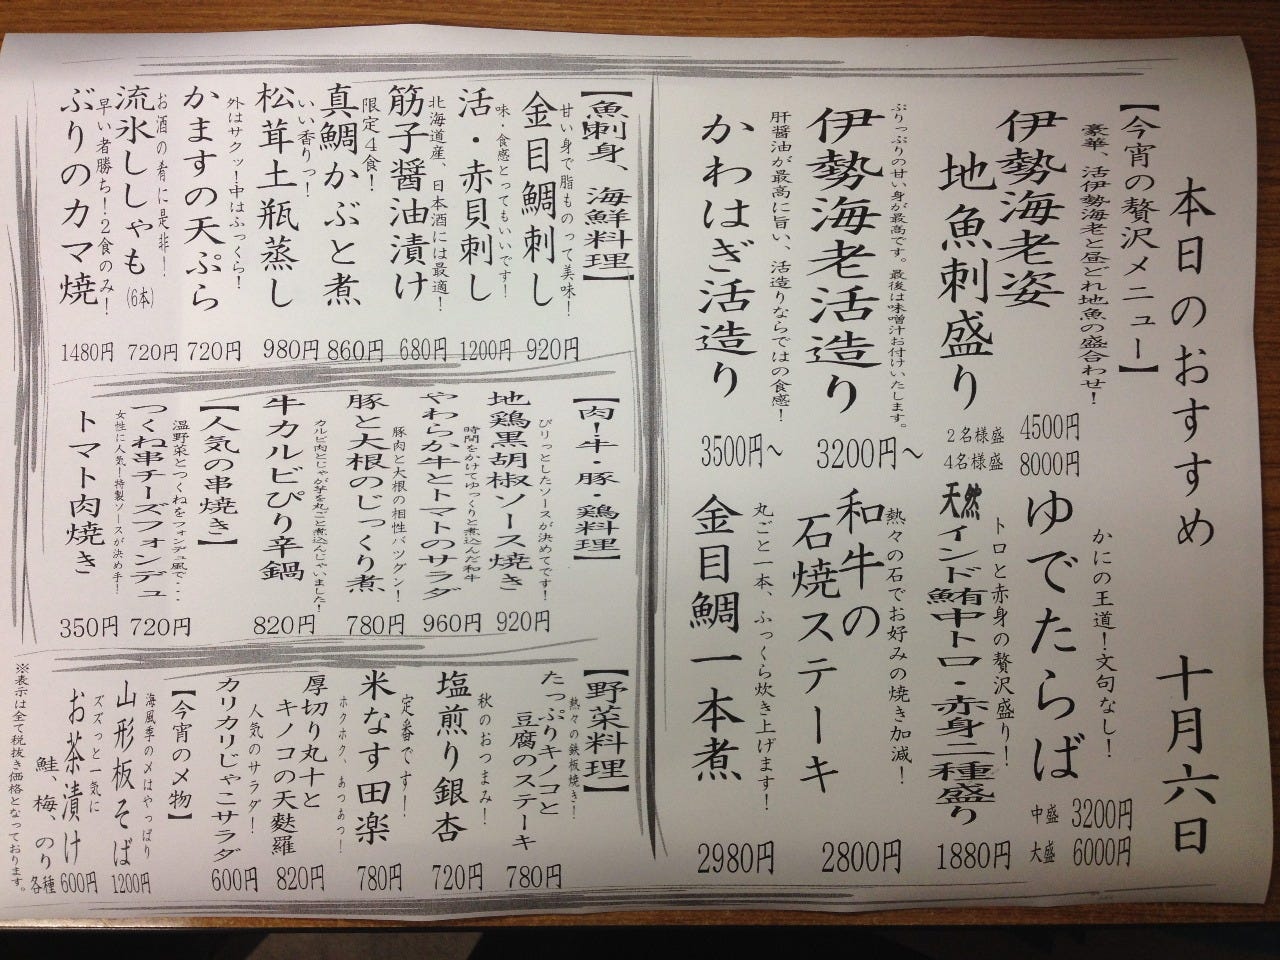 本日のおすすめ 十月六日
【今宵の贅沢メニュー】
豪華、活伊勢海老と昼どれ地魚の盛合わせ！
伊勢海老姿
地魚刺盛り
2名様盛 4500円
4名様盛 8000円
ぷりっぷりの甘い身が最高です。最後は味噌汁お付けいたします。
伊勢海老活造り
3200円～
肝醤油が最高に旨い、活造りならではの食感！
かわはぎ活造り
3500円～
かにの王道！文句なし！
ゆでたらば
中盛 3200円
大盛 6000円
トロと赤身の贅沢盛り！
天然インド鮪中トロ・赤身二種盛り
1880円
熱々の石でお好みの焼き加減！
和牛の
石焼ステーキ
2800円
丸ごと一本、ふっくら炊き上げます！
金目鯛一本煮
2980円
【魚刺身、海鮮料理】
甘い身で脂ものって美味！
金目鯛刺し
920円
味、食感とってもいいです！
活・赤貝刺し
1200円
北海道産、日本酒には最適！
筋子醤油漬け
680円
限定4食！
真鯛かぶと煮
860円
いい香りっ！
松茸土瓶蒸し
980円
外はサクッ！中はふっくら！
かますの天ぷら
720円
お酒の肴に是非！
流氷ししゃも(6本)
720円
早い者勝ち！2食のみ！
ぶりのカマ焼
1480円
【肉！牛・豚・鶏料理】
ぴりっとしたソースが決めてです！
地鶏黒胡椒ソース焼き
920円
時間をかけてゆっくりと煮込んだ和牛
やわらか牛とトマトのサラダ
960円
豚肉と大根の相性バツグン！
豚と大根のじっくり煮
780円
カルビ肉とじゃが芋を丸ごと煮込んじゃいました！
牛カルビぴり辛鍋
820円
【人気の串焼き】
温野菜とつくねをフォンデュ風で・・・
つくね串チーズフォンデュ
720円
女性に人気！特製ソースが決め手！
トマト肉焼き
350円
【野菜料理】
熱々の鉄板焼き！
たっぷりキノコと
豆腐のステーキ
780円
秋のおつまみ！
塩煎り銀杏
720円
定番です！
米なす田楽
780円
ホクホク、あつあつ！
厚切り丸十と
キノコの天麩羅
820円
人気のサラダ！
カリカリじゃこサラダ
600円
【今宵の〆物】
海風季の〆はやっぱり
山形板そば
1200円
ズズっと一気に
お茶漬け
鮭、梅、のり 各種 600円
※表示は全て税抜き価格となっております。